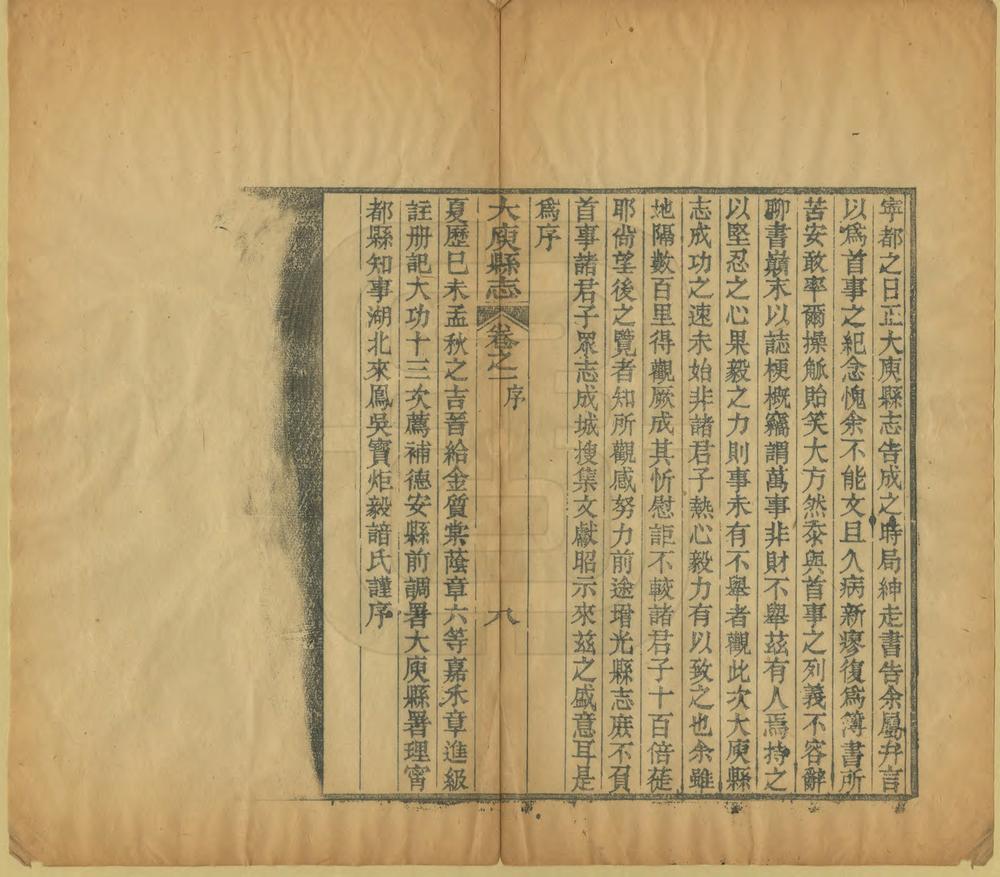 寧都之日正大庾縣志告成之時局紳走書告余屬弁言
以爲首事之紀念愧余不能文且久病新瘳復爲簿書所
苦安敢率爾操觚貽笑大方然忝與首事之列義不容辭
聊書巔末以誌梗概竊謂萬事非財不舉茲有人焉持之
以堅忍之心果毅之力則事未有不舉者觀此次大庾縣
志成功之速未始非諸君子熱心毅力有以致之也余雖
地隔數百里得觀厥成其忻慰詎不較諸君子十百倍蓰
耶尙望後之覽者知所觀感努力前途增光縣志庶不負
首事諸君子眾志成城搜集文獻昭示來茲之盛意耳是
爲序
大庾縣志 卷之一 序 八
夏歷已未孟秋之吉晉給金質棠蔭章六等嘉禾章進級
註册記大功十三次薦補德安縣前調署大庾縣署理寗
都縣知事湖北來鳳吳寶炬毅諳氏謹序